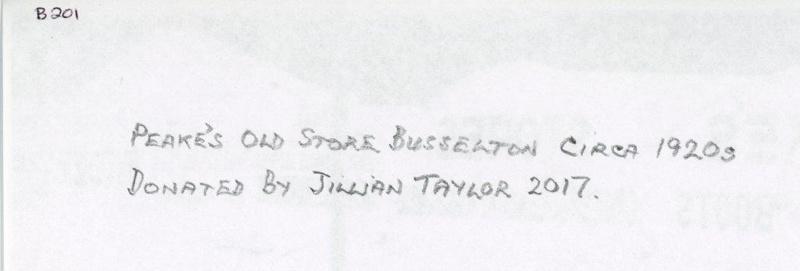 B201
PEAKE'S OLD STORE BUSSELTON CIRCA 1920s
DONATED BY JILLIAN TAYLOR 2017.